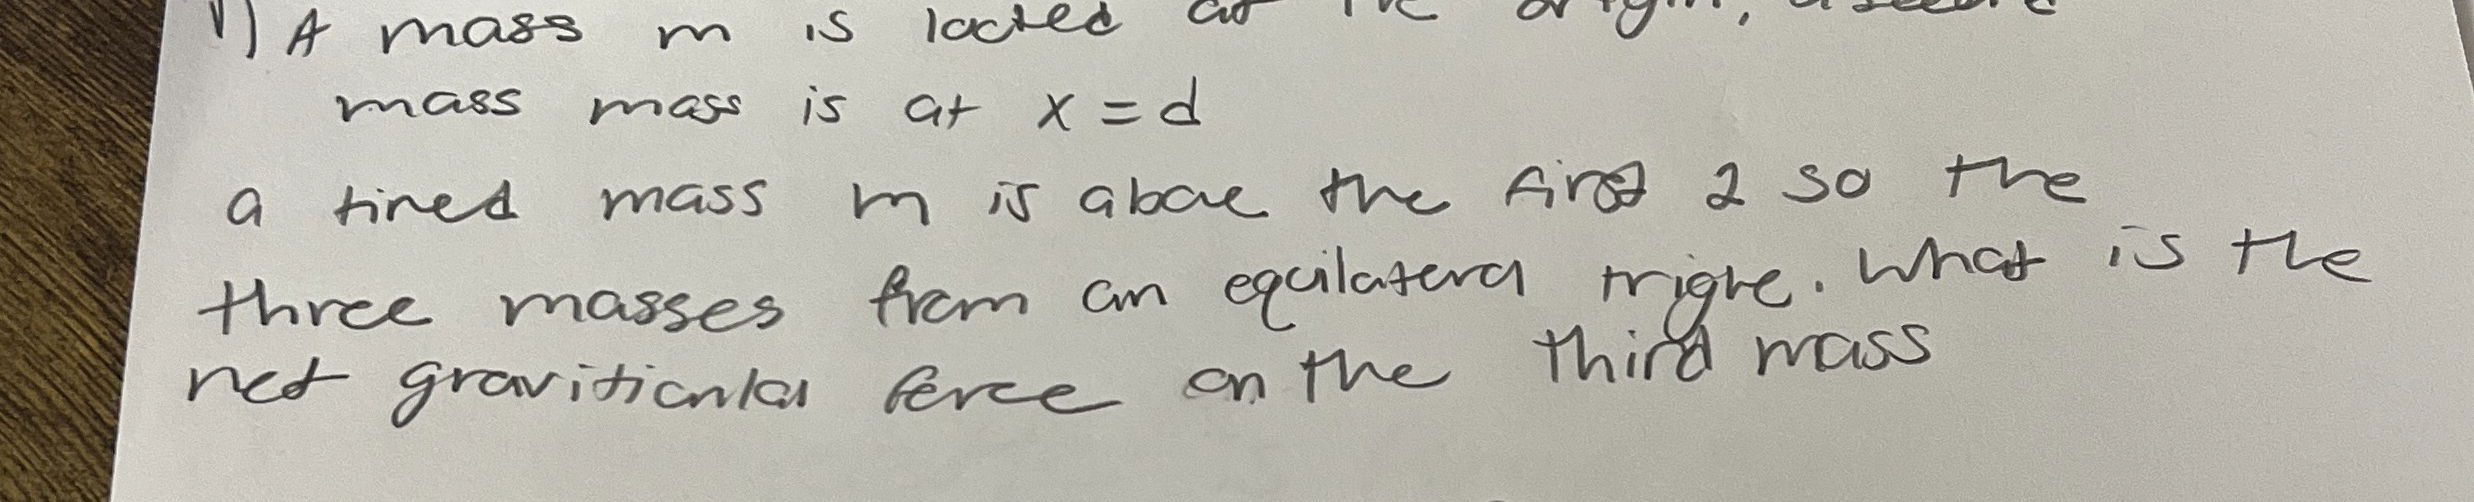 1) A mass m is locted at the origin, a second
mass mass is at x = d
a tired mass m is aboe the first 2 so the
three masses from an equilaterd trigle. What is the
net graviticnlal force on the third mass